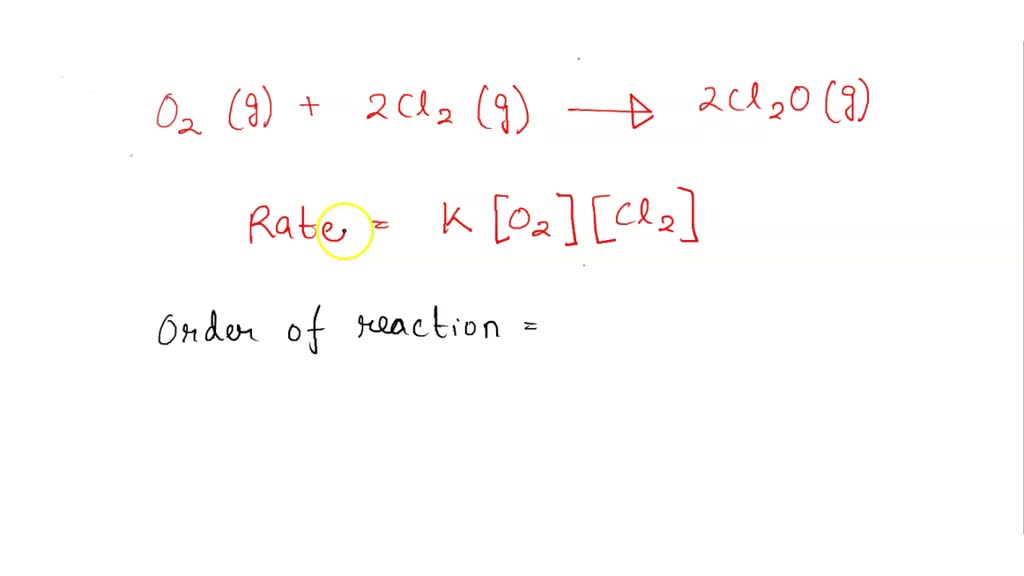 O₂ (g) + 2Cl₂ (g) → 2Cl₂O (g)
Rate = K [O₂] [Cl₂]
Order of reaction =